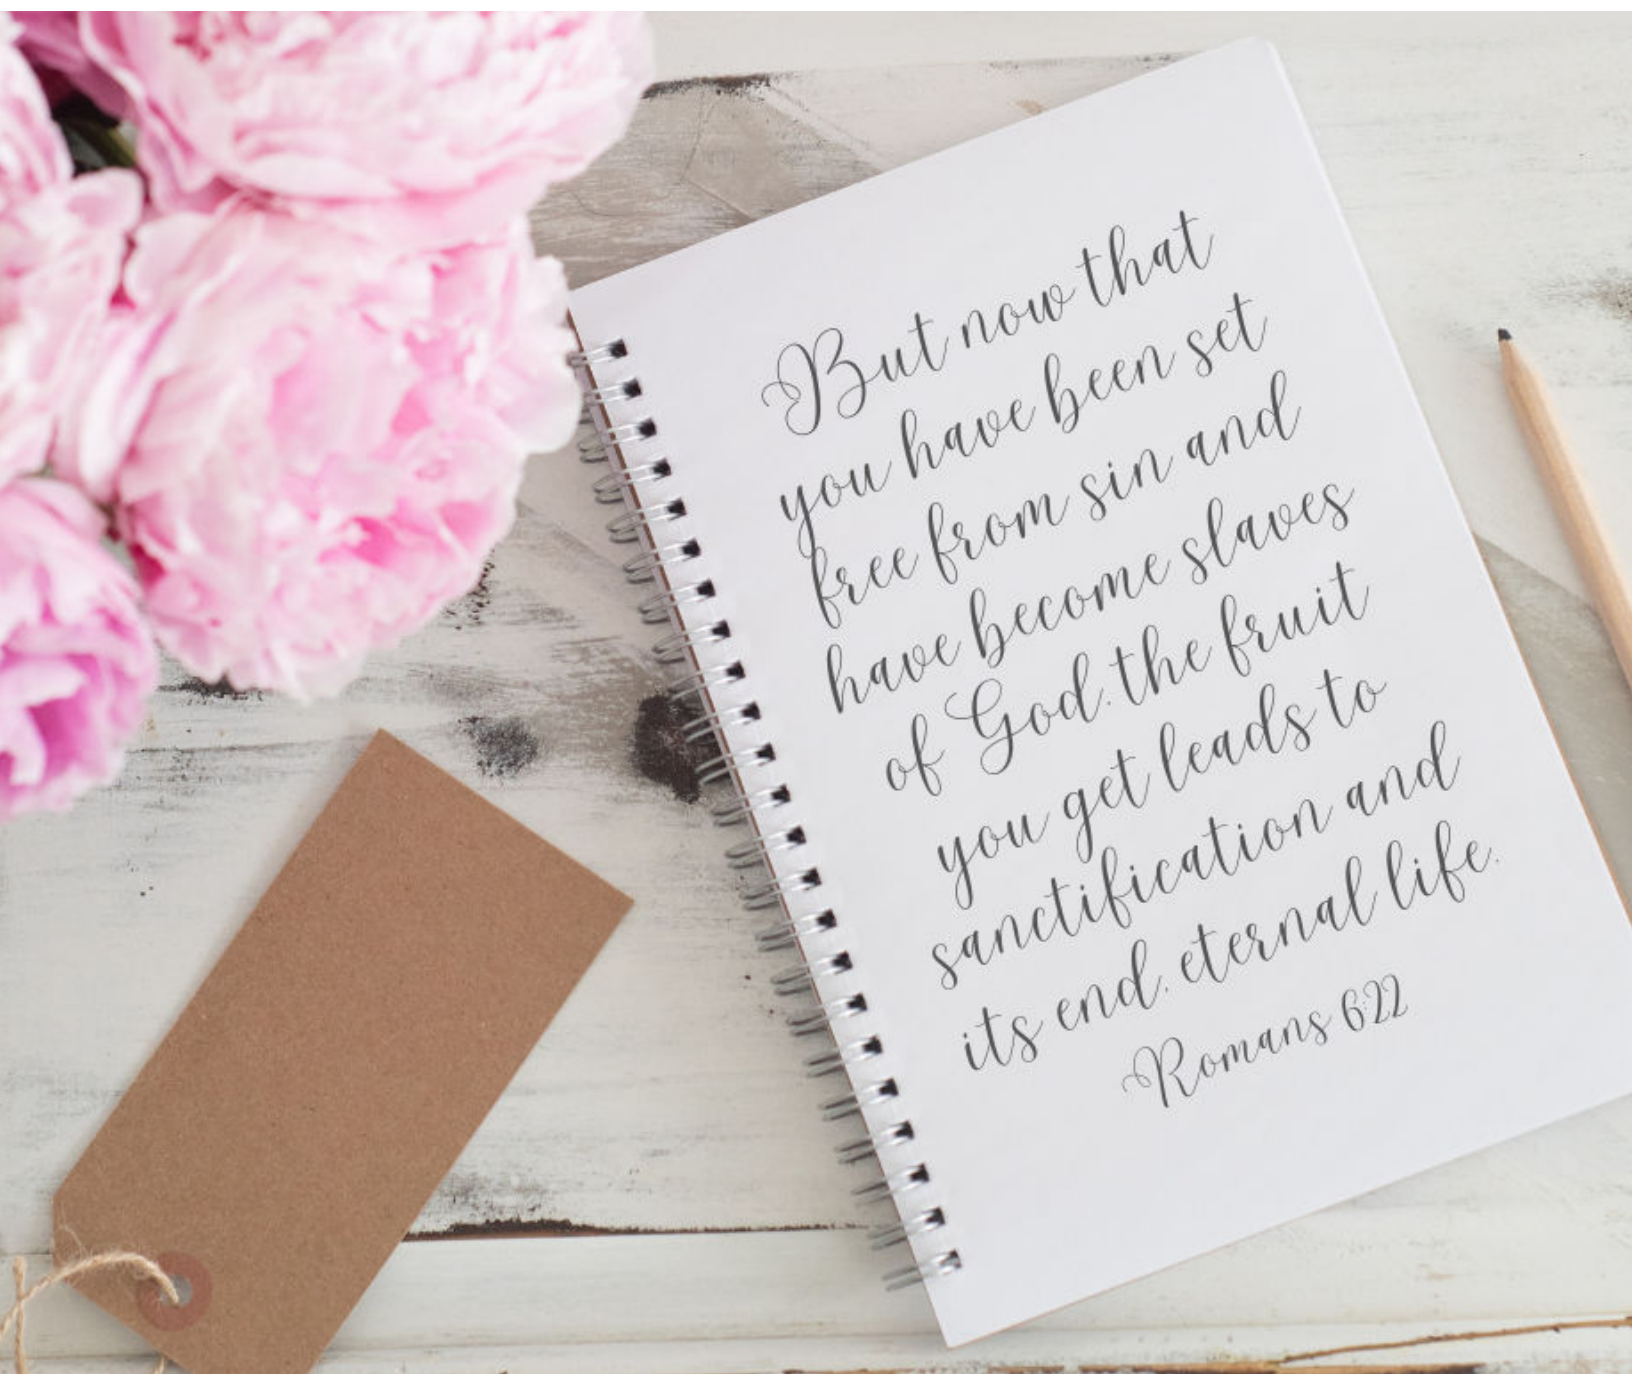 But now that
you have been set
free from sin and
have become slaves
of God, the fruit
you get leads to
sanctification and
its end, eternal life.
Romans 6:22